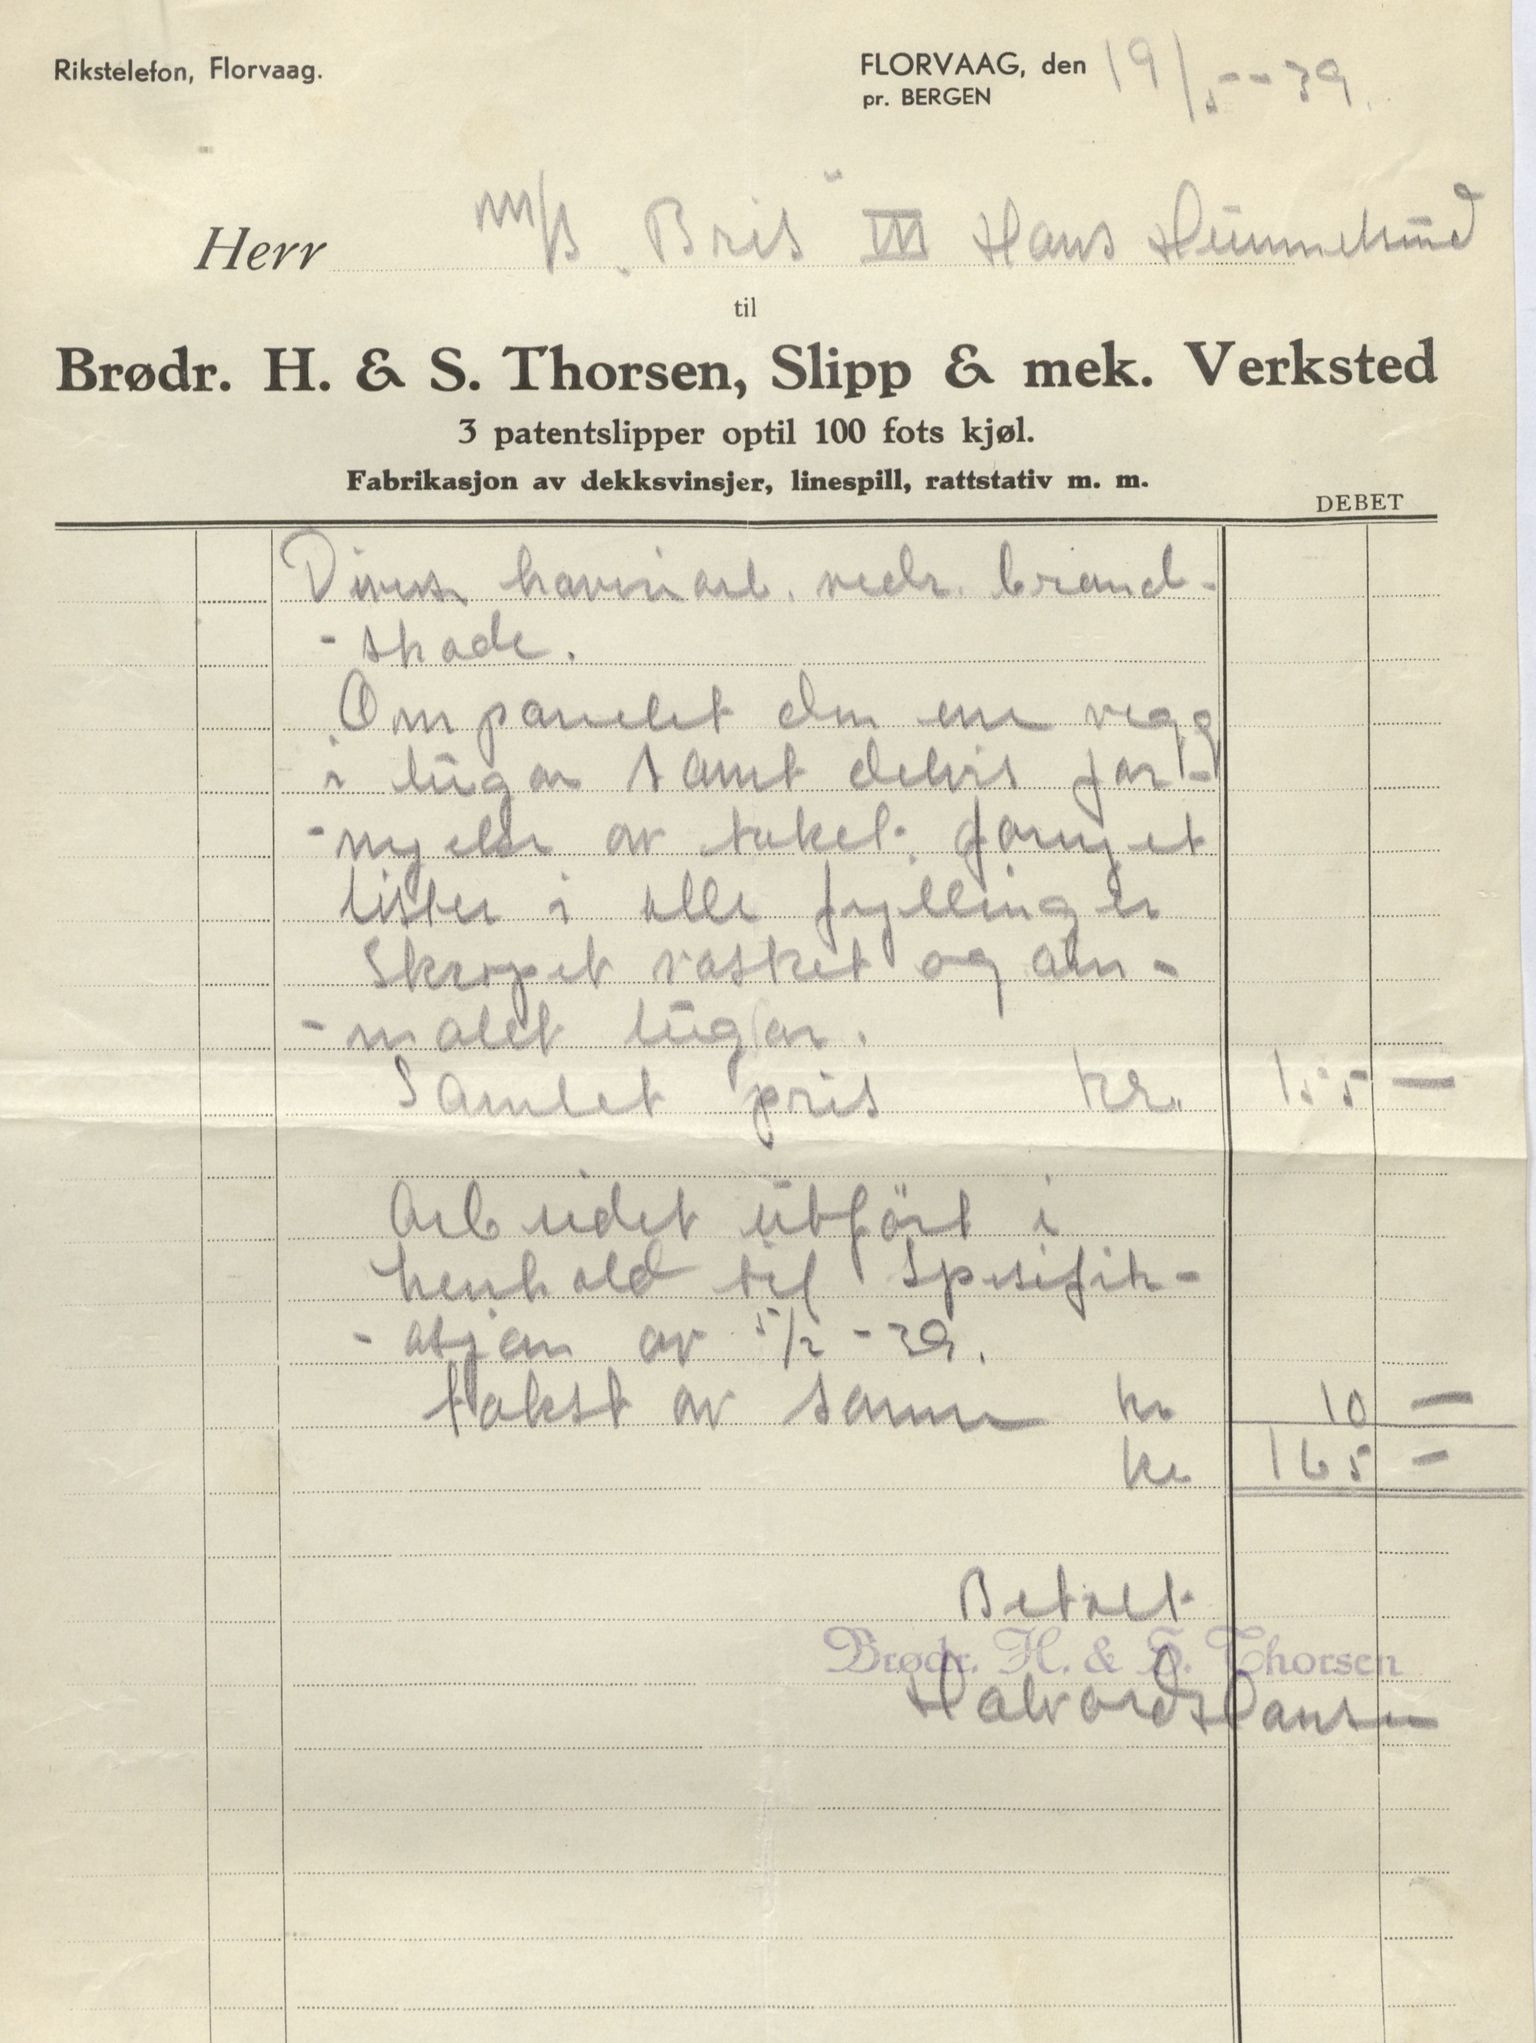 Rikstelefon, Florvaag.
FLORVAAG, den 19/5--39.
pr. BERGEN
Herr m/s. "Bris" III Hans Hummelsund
til
Brødr. H. & S. Thorsen, Slipp & mek. Verksted
3 patentslipper optil 100 fots kjøl.
Fabrikasjon av dekksvinsjer, linespill, rattstativ m. m.
DEBET
Divers. havariarb. vedr. brand-
-skade.
Ompanelet den ene vegg
i lugar samt delvis for-
-nyelse av taket. fornyet
lister i alle fyllinger
Skrapet vasket og om-
-malet lugar.
Samlet pris kr. 155 —
Arbeidet utført i
henhold til spesifik-
-asjon av 5/2 -39.
takst av samme kr 10 —
kr 165 —
Betalt
Brødr. H. & S. Thorsen
Halvard Hansen